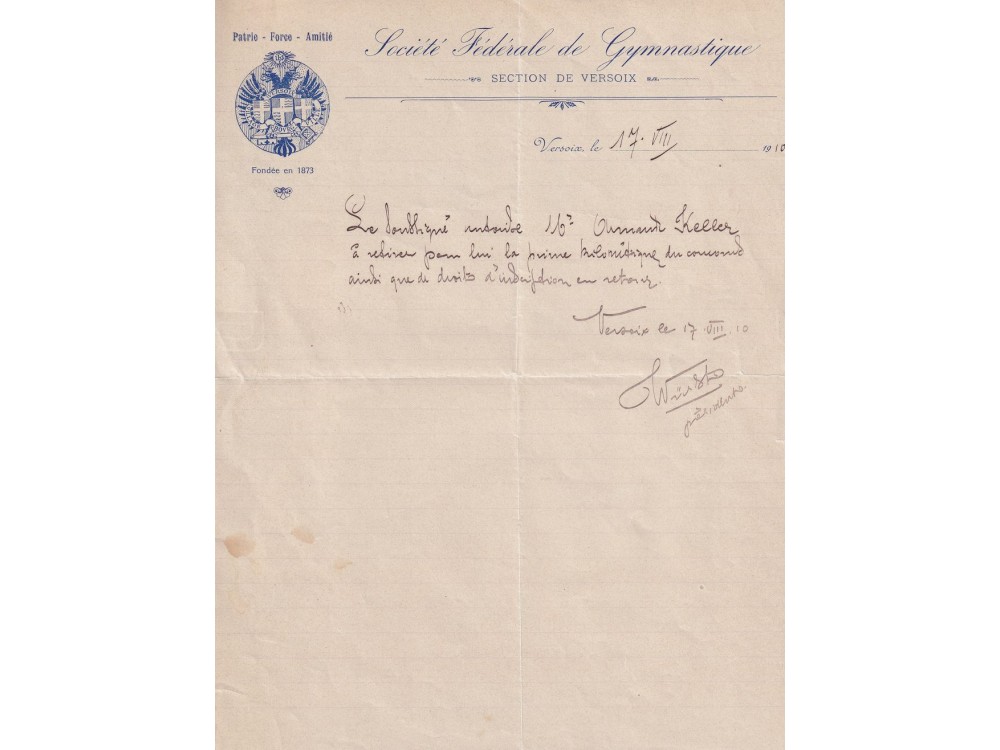 Patrie - Force - Amitié
Société Fédérale de Gymnastique
SECTION DE VERSOIX
Fondée en 1873
Versoix, le 17. VIII 1910
Le soussigné autorise Mr Armand Keller
à retirer pour lui la prime kilométrique du concours
ainsi que de droits d'inscription en retour.
Versoix le 17 VIII 10
président